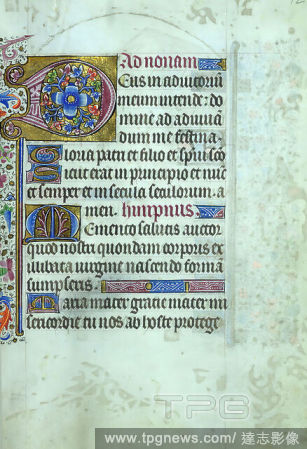 12
Ad nonam
Deus in adiutoriū
meum intende: do
mine ad adiuuā
dum me festina.
Gloria patri et filio et spūi scō
Sicut erat in principio et nūc
et semper et in secula seculorum. a
men. himpnus.
Memento salutis auctor
quod nostri quondam corpus ex
illibata uirgine nascendo formā
sumpseris.
Maria mater gratie mater mi
sericordie tu nos ab hoste protege
TPG
www.tpgnews.com/ 達志影像